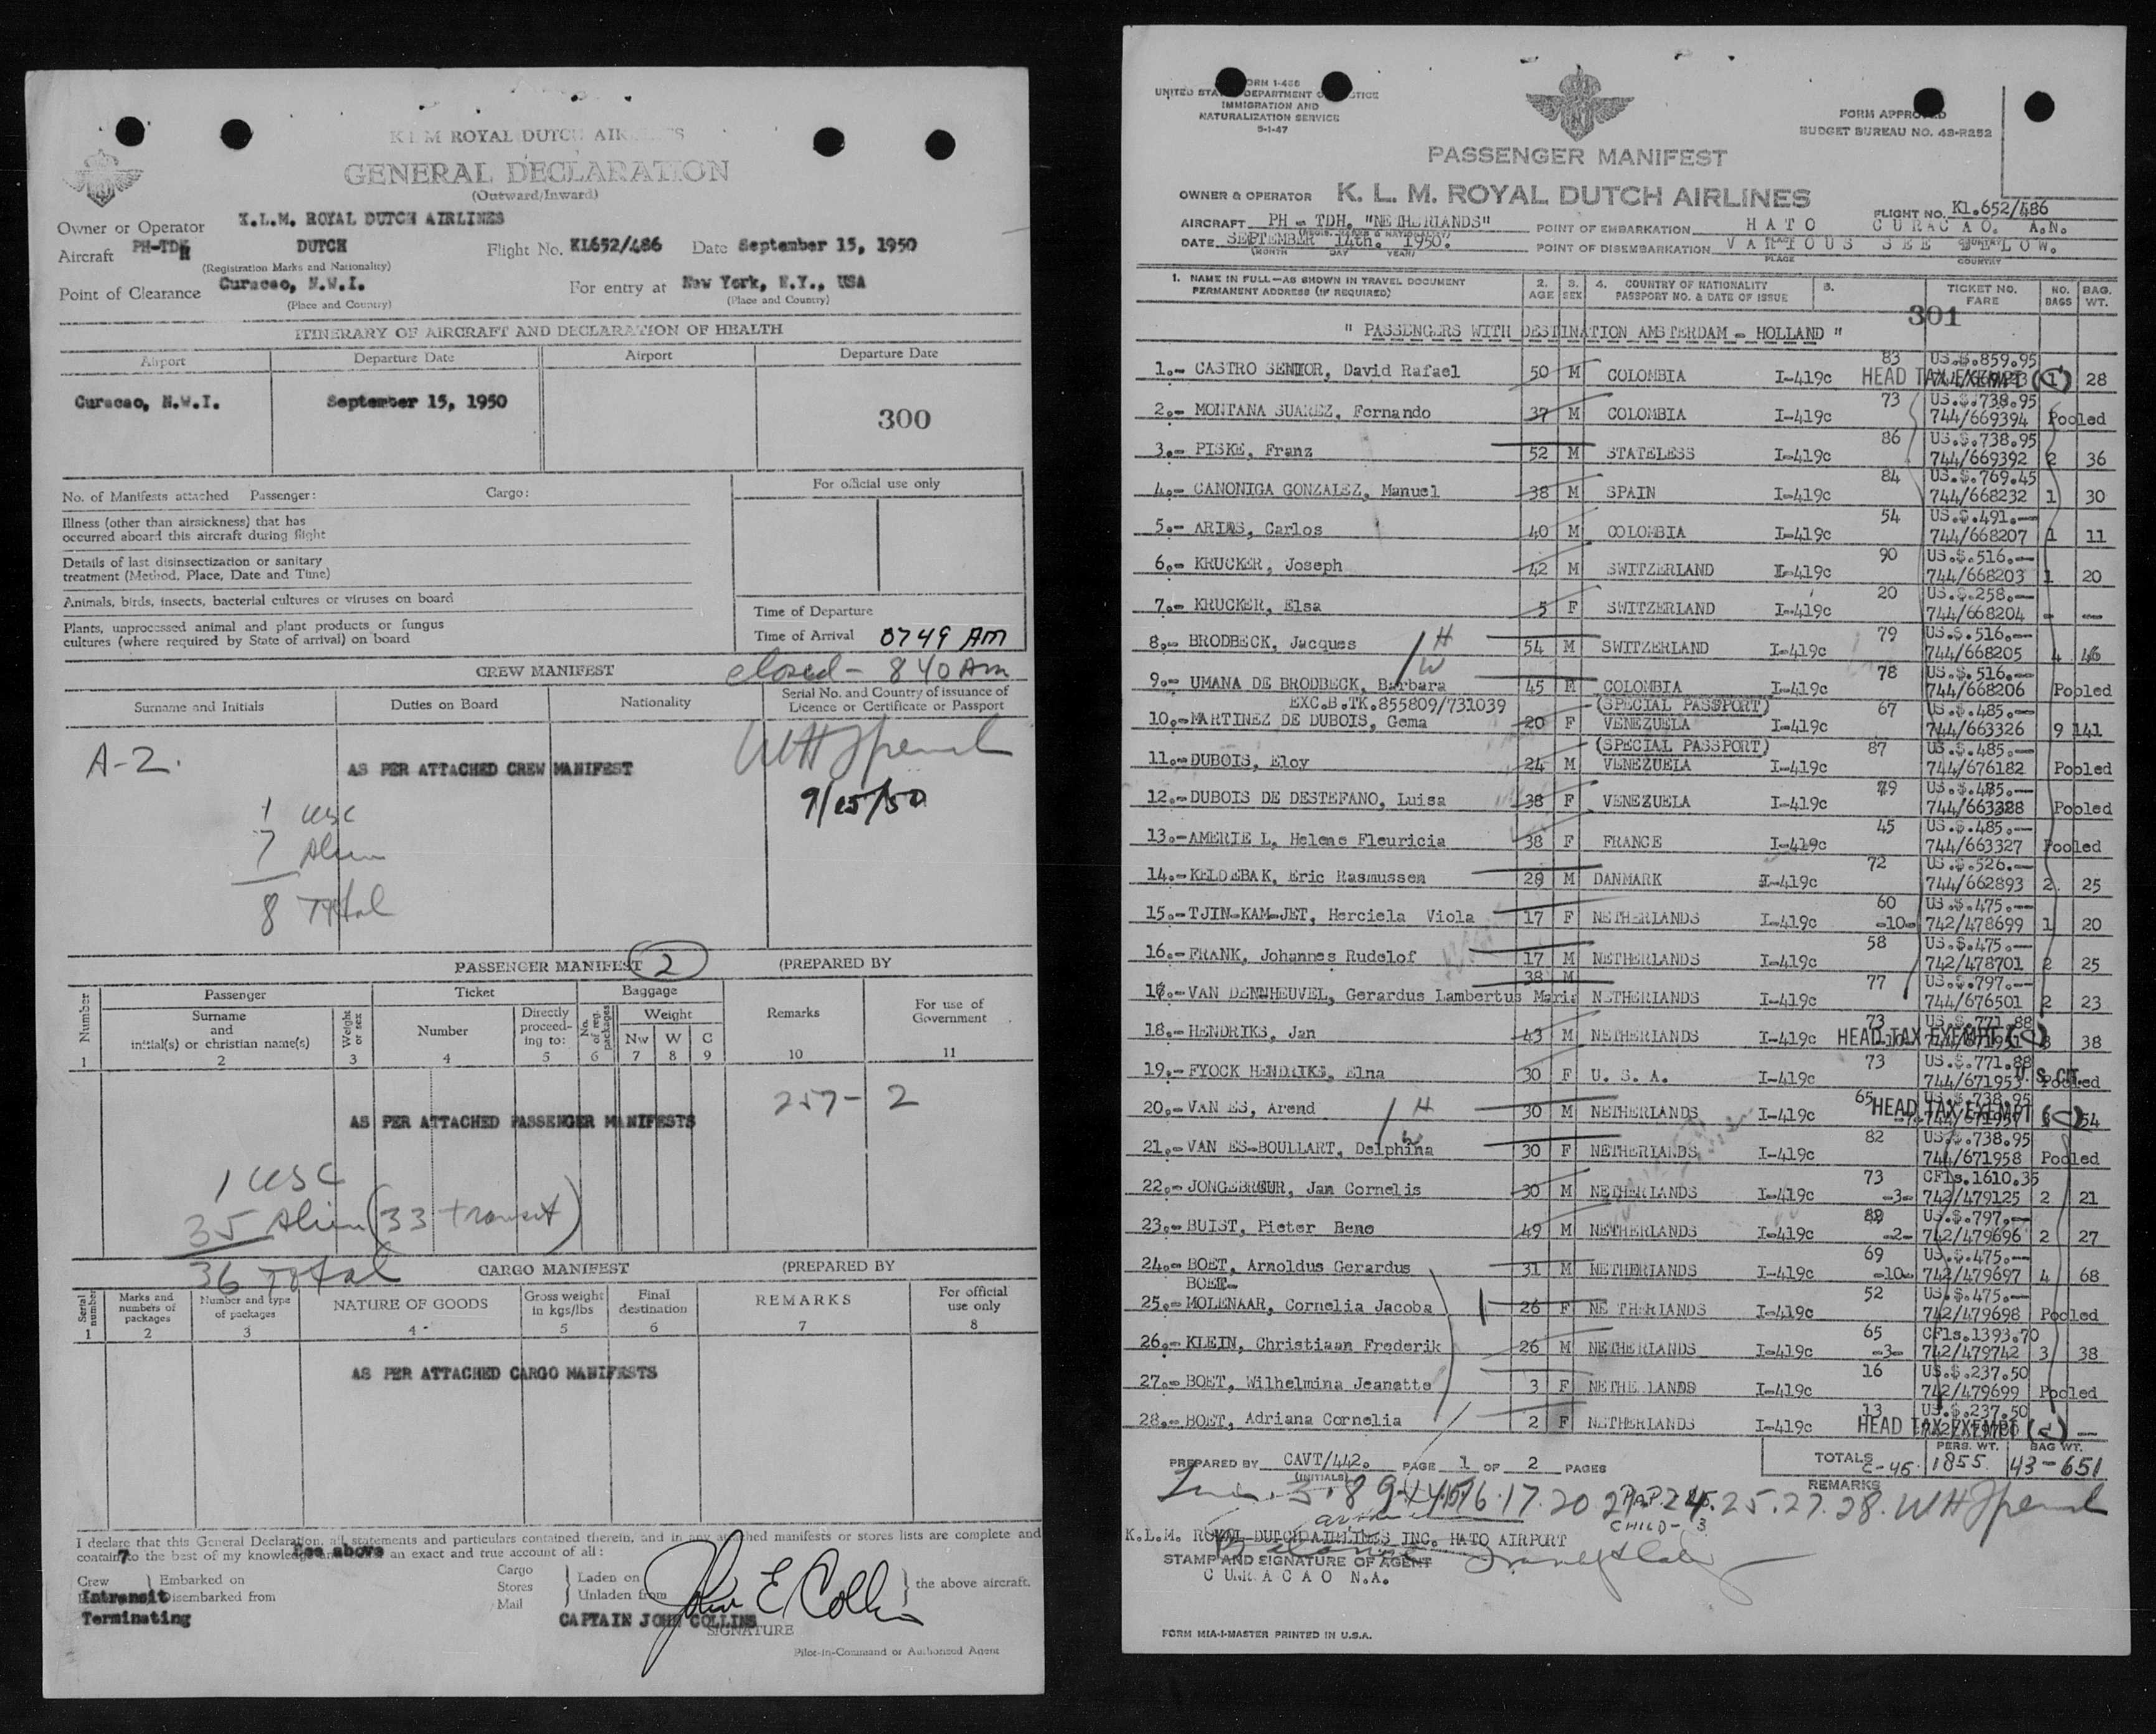 K L M ROYAL DUTCH AIRLINES
GENERAL DECLARATION
(Outward/Inward)
Owner or Operator K.L.M. ROYAL DUTCH AIRLINES
Aircraft PH-TDH DUTCH Flight No. KL652/486 Date September 15, 1950
(Registration Marks and Nationality)
Point of Clearance Curacao, N.W.I. For entry at New York, N.Y., USA
(Place and Country) (Place and Country)
ITINERARY OF AIRCRAFT AND DECLARATION OF HEALTH
Airport Departure Date Airport Departure Date
Curacao, N.W.I. September 15, 1950
300
No. of Manifests attached Passenger: Cargo: For official use only
Illness (other than airsickness) that has
occurred aboard this aircraft during flight
Details of last disinsectization or sanitary
treatment (Method, Place, Date and Time)
Animals, birds, insects, bacterial cultures or viruses on board
Plants, unprocessed animal and plant products or fungus
cultures (where required by State of arrival) on board
Time of Departure
Time of Arrival 0749 AM
CREW MANIFEST closed - 840 Am
Surname and Initials Duties on Board Nationality Serial No. and Country of issuance of
Licence or Certificate or Passport
A-2. AS PER ATTACHED CREW MANIFEST
9/15/50
1 usc
7 Alien
8 Total
PASSENGER MANIFEST 2 (PREPARED BY
Number Passenger Ticket Baggage Remarks For use of Government
Surname and initial(s) or christian name(s) Weight or sex Number Directly proceeding to: No. of reg. packages Weight
Nw W C
1 2 3 4 5 6 7 8 9 10 11
257- 2
AS PER ATTACHED PASSENGER MANIFESTS
1 usc
35 Alien (33 transit)
36 Total
CARGO MANIFEST (PREPARED BY
Serial number Marks and numbers of packages Number and type of packages NATURE OF GOODS Gross weight in kgs/lbs Final destination REMARKS For official use only
1 2 3 4 5 6 7 8
AS PER ATTACHED CARGO MANIFESTS
I declare that this General Declaration, all statements and particulars contained therein, and in any attached manifests or stores lists are complete and
contain to the best of my knowledge and an exact and true account of all:
7 See above
Crew Embarked on Cargo Laden on
Intransit Disembarked from Stores Unladen from the above aircraft.
Terminating Mail
John E Collins
CAPTAIN JOHN COLLINS
SIGNATURE
Pilot-in-Command or Authorized Agent
FORM 1-466
UNITED STATES DEPARTMENT OF JUSTICE
IMMIGRATION AND
NATURALIZATION SERVICE
5-1-47
FORM APPROVED
BUDGET BUREAU NO. 43-R252
PASSENGER MANIFEST
OWNER & OPERATOR K. L. M. ROYAL DUTCH AIRLINES
AIRCRAFT PH - TDH. "NETHERLANDS" POINT OF EMBARKATION HATO CURACAO. A.N. FLIGHT NO. Kl.652/486
DATE SEPTEMBER 14th. 1950. POINT OF DISEMBARKATION VARIOUS SEE BELOW.
(MONTH DAY YEAR) PLACE COUNTRY
1. NAME IN FULL—AS SHOWN IN TRAVEL DOCUMENT
PERMANENT ADDRESS (IF REQUIRED)
2. AGE 3. SEX 4. COUNTRY OF NATIONALITY
PASSPORT NO. & DATE OF ISSUE 5. TICKET NO. FARE NO. BAGS BAG. WT.
301
" PASSENGERS WITH DESTINATION AMSTERDAM - HOLLAND "
1.- CASTRO SENIOR, David Rafael 50 M COLOMBIA I-419c 83 US.$.859.95 HEAD TAX EXEMPT (1) 28
2.- MONTANA SUAREZ, Fernando 37 M COLOMBIA I-419c 73 US.$.738.95 744/669394 Pooled
3.- PISKE, Franz 52 M STATELESS I-419c 86 US.$.738.95 744/669392 2 36
4.- CANONIGA GONZALEZ, Manuel 38 M SPAIN I-419c 84 US.$.769.45 744/668232 1 30
5.- ARIAS, Carlos 40 M COLOMBIA I-419c 54 US.$.491.— 744/668207 1 11
6.- KRUCKER, Joseph 42 M SWITZERLAND I-419c 90 US.$.516.— 744/668203 1 20
7.- KRUCKER, Elsa 5 F SWITZERLAND I-419c 20 US.$.258.— 744/668204 - --
8.- BRODBECK, Jacques H 54 M SWITZERLAND I-419c 79 US.$.516.— 744/668205 4 46
9.- UMANA DE BRODBECK, Barbara W 45 M COLOMBIA I-419c 78 US.$.516.— 744/668206 Pooled
EXC.B.TK.855809/731039 (SPECIAL PASSPORT)
10.- MARTINEZ DE DUBOIS, Gema 20 F VENEZUELA I-419c 67 US.$.485.— 744/663326 9 141
(SPECIAL PASSPORT)
11.- DUBOIS, Eloy 24 M VENEZUELA I-419c 87 US.$.485.— 744/676182 Pooled
12.- DUBOIS DE DESTEFANO, Luisa 38 F VENEZUELA I-419c US.$.485.— Pooled
13.- AMERIE L, Helene Fleuricia 38 F FRANCE I-419c 45 US.$.485.— 744/663327 Pooled
14.- KELDEBAK, Eric Rasmussen 28 M DANMARK I-419c 72 US.$.526.— 744/662893 2 25
15.- TJIN-KAM-JET, Herciela Viola 17 F NETHERLANDS I-419c 60 -10- US.$.475.— 742/478699 1 20
16.- FRANK, Johannes Rudelof 17 M NETHERLANDS I-419c 58 US.$.475.— 742/478701 2 25
17.- VAN DENNHEUVEL, Gerardus Lambertus Maria 38 M NETHERLANDS I-419c 77 US.$.797.— 744/676501 2 23
18.- HENDRIKS, Jan 43 M NETHERLANDS I-419c 73 US.$.771.88 HEAD TAX EXEMPT 38
19.- FYOCK HENDRIKS, Elna 30 F U. S. A. I-419c 73 US.$.771.88 744/671953 U.S. CIT. Pooled
20.- VAN ES, Arend H 30 M NETHERLANDS I-419c 65 US.$.738.95 HEAD TAX EXEMPT 744/671957 54
21.- VAN ES-BOULLART, Delphina W 30 F NETHERLANDS I-419c 82 US.$.738.95 744/671958 Pooled
22.- JONGEBREUR, Jan Cornelis 30 M NETHERLANDS I-419c 73 -3- CFls.1610.35 742/479125 2 21
23.- BUIST, Pieter Beno 49 M NETHERLANDS I-419c -2- US.$.797.— 742/479696 2 27
24.- BOET, Arnoldus Gerardus 31 M NETHERLANDS I-419c 69 -10- US.$.475.— 742/479697 4 68
BOET-
25.- MOLENAAR, Cornelia Jacoba 26 F NETHERLANDS I-419c 52 US.$.475.— 742/479698 Pooled
26.- KLEIN, Christiaan Frederik 26 M NETHERLANDS I-419c 65 -3- CFls.1393.70 742/479742 3 38
27.- BOET, Wilhelmina Jeanette 3 F NETHERLANDS I-419c 16 US.$.237.50 742/479699 Pooled
28.- BOET, Adriana Cornelia 2 F NETHERLANDS I-419c 13 US.$.237.50 HEAD TAX EXEMPT --
PREPARED BY CAVT/442. PAGE 1 OF 2 PAGES TOTALS PERS. WT. 1855. BAG WT. 43-651
(INITIALS) C-45. REMARKS
CHILD- 3
K.L.M. ROYAL DUTCH AIRLINES INC. HATO AIRPORT
STAMP AND SIGNATURE OF AGENT
CURACAO N.A.
FORM MIA-I-MASTER PRINTED IN U.S.A.